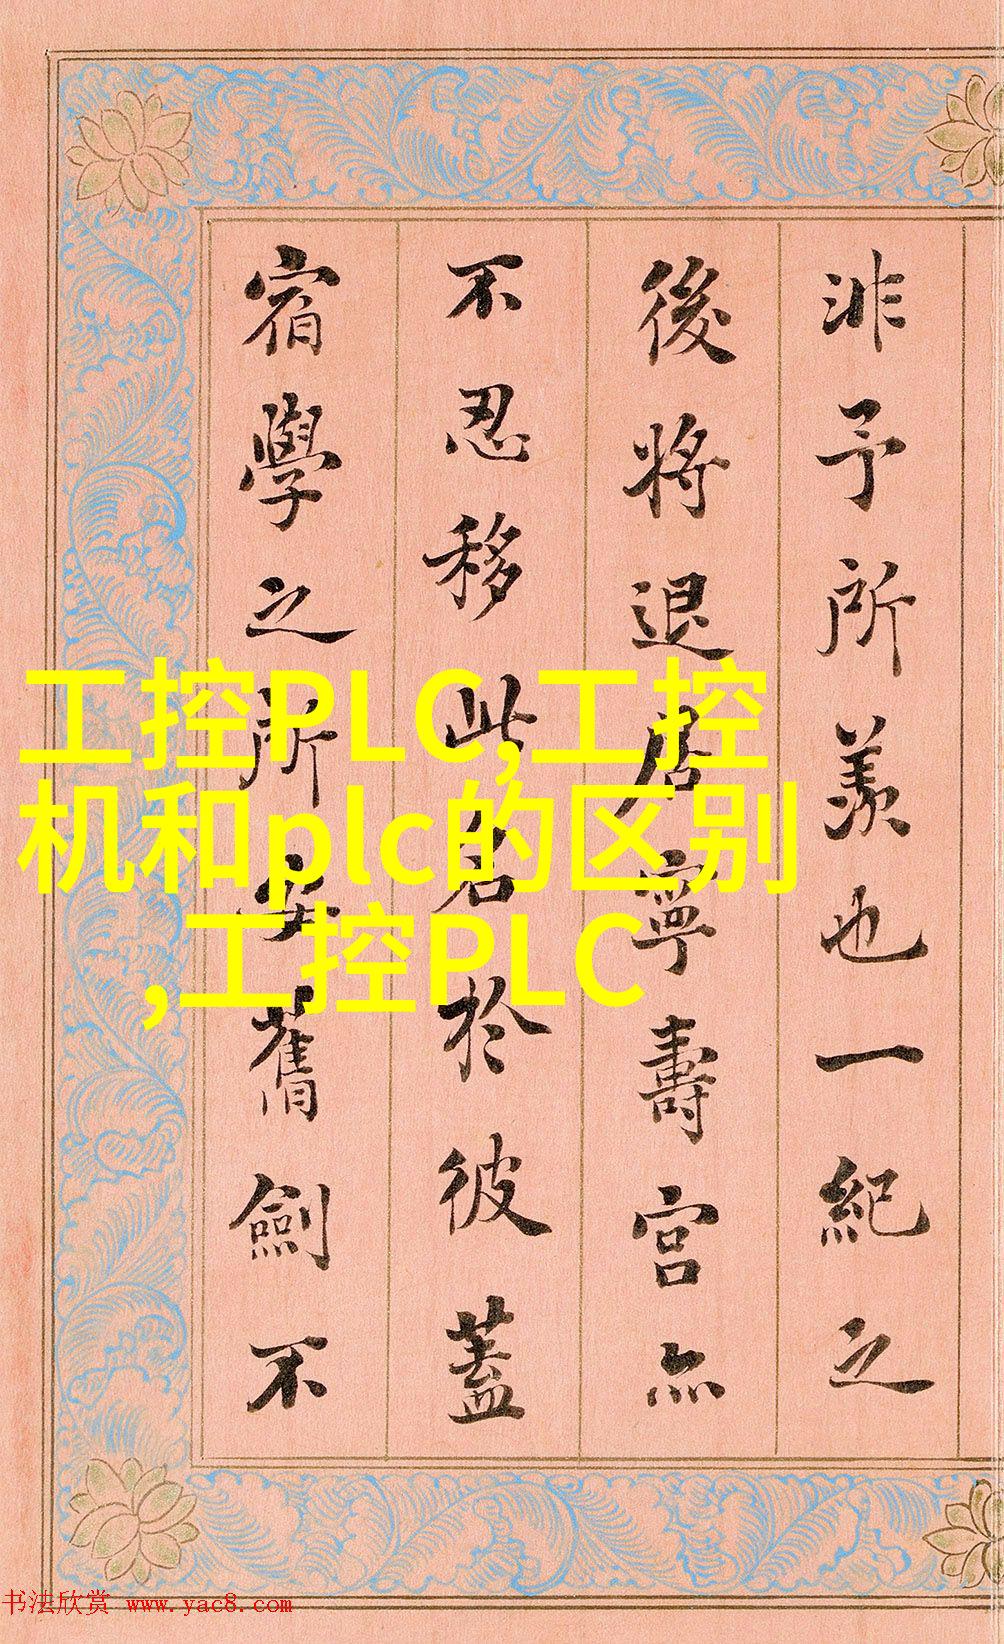 非予所羨也一紀之
後將退居寧壽宮亦
不忍移此名於彼蓋
宿學之所安舊劍不
工控PLC,工控
机和plc的区别
,工控PLC
书法欣赏 www.yac8.com